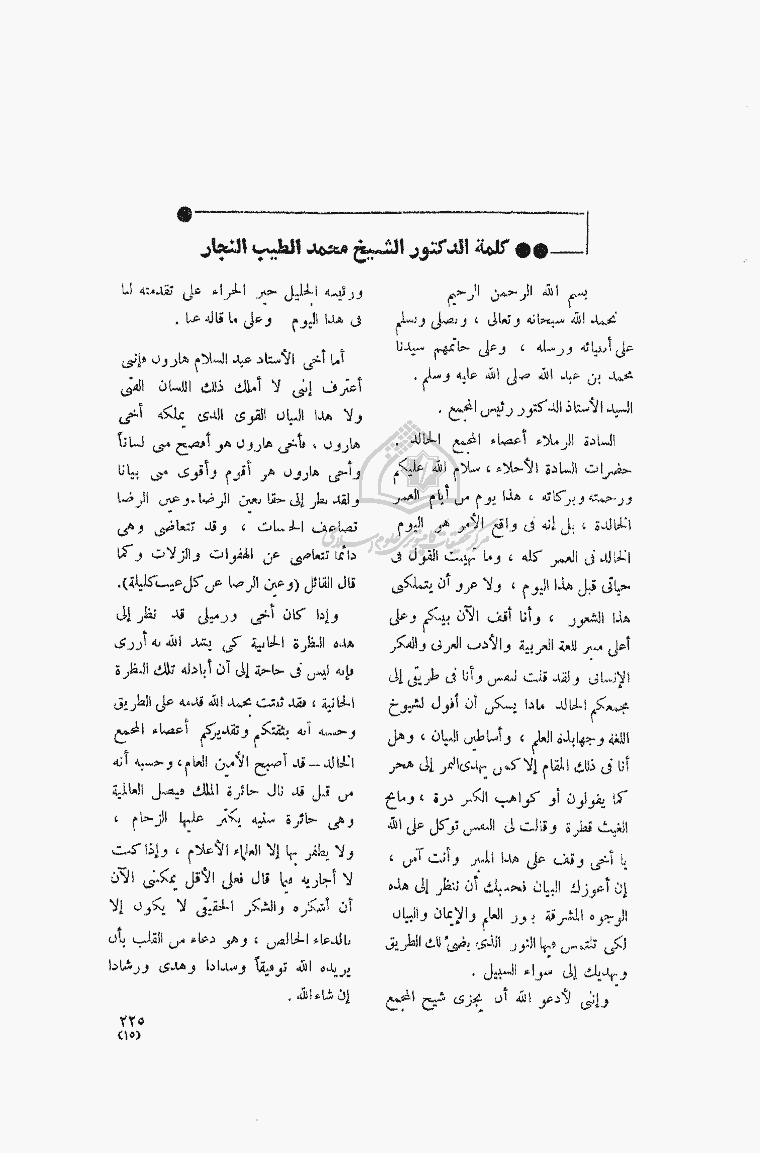 كلمة الدكتور الشيخ محمد الطيب النجار
بسم الله الرحمن الرحيم
نحمد الله سبحانه وتعالى ، ونصلى ونسلم
على أنبيائه ورسله ، وعلى خاتمهم سيدنا
محمد بن عبد الله صلى الله عليه وسلم .
السيد الأستاذ الدكتور رئيس المجمع .
السادة الزملاء أعضاء المجمع الخالد .
حضرات السادة الأجلاء ، سلام الله عليكم
ورحمته وبركاته ، هذا يوم من أيام العمر
الخالدة ، بل إنه فى واقع الأمر هو اليوم
الخالد فى العمر كله ، وما تهيبت القول فى
حياتى قبل هذا اليوم ، ولا غرو أن يتملكنى
هذا الشعور ، وأنا أقف الآن بينكم وعلى
أعلى منبر للغة العربية والأدب العربى والفكر
الإنسانى ولقد قلت لنفسى وأنا فى طريقى إلى
مجمعكم الخالد ماذا يمكن أن أقول لشيوخ
اللغة وجهابذة العلم ، وأساطين البيان ، وهل
أنا فى ذلك المقام إلا كمن يهدى التمر إلى هجر
كما يقولون أو كواهب الكنز درة ، ومانح
الغيث قطرة وقالت لى النفس توكل على الله
يا أخى وقف على هذا المنبر وأنت آمن ،
إن أعوزك البيان فحسبك أن تنظر إلى هذه
الوجوه المشرقة بنور العلم والإيمان والبيان
لكى تلتمس فيها النور الذى يضىء لك الطريق
ويهديك إلى سواء السبيل .
وإنى لأدعو الله أن يجزى شيخ المجمع
ورئيسه الجليل خير الجزاء على تقدمته لنا
فى هذا اليوم وعلى ما قاله عنا .
أما أخى الأستاذ عبد السلام هارون فإننى
أعترف إنى لا أملك ذلك اللسان الفتى
ولا هذا البيان القوى الذى يملكه أخى
هارون ، فأخى هارون هو أفصح منى لساناً
وأخى هارون هو أقوم وأقوى منى بيانا
ولقد نظر إلى حقا بعين الرضا وعين الرضا
تضاعف الحسنات ، وقد تتغاضى وهى
دائما تتغاضى عن الهفوات والزلات وكما
قال القائل (وعين الرضا عن كل عيب كليلة).
وإذا كان أخى وزميلى قد نظر إلى
هذه النظرة الحانية كى يشد الله به أزرى
فإنه ليس فى حاجة إلى أن أبادله تلك النظرة
الحانية ، فقد ثبتت بحمد الله قدمه على الطريق
وحسبه أنه بثقتكم وتقديركم أعضاء المجمع
الخالد – قد أصبح الأمين العام ، وحسبه أنه
من قبل قد نال جائزة الملك فيصل العالمية
وهى جائزة سنيه يكثر عليها الزحام ،
ولا يظفر بها إلا العلماء الأعلام ، وإذا كنت
لا أجاريه فيما قال فعلى الأقل يمكننى الآن
أن أشكره والشكر الحقيقى لا يكون إلا
بالدعاء الخالص ، وهو دعاء من القلب بأن
يزيده الله توفيقاً وسدادا وهدى ورشادا
إن شاء الله .
٢٢٥
(١٥)